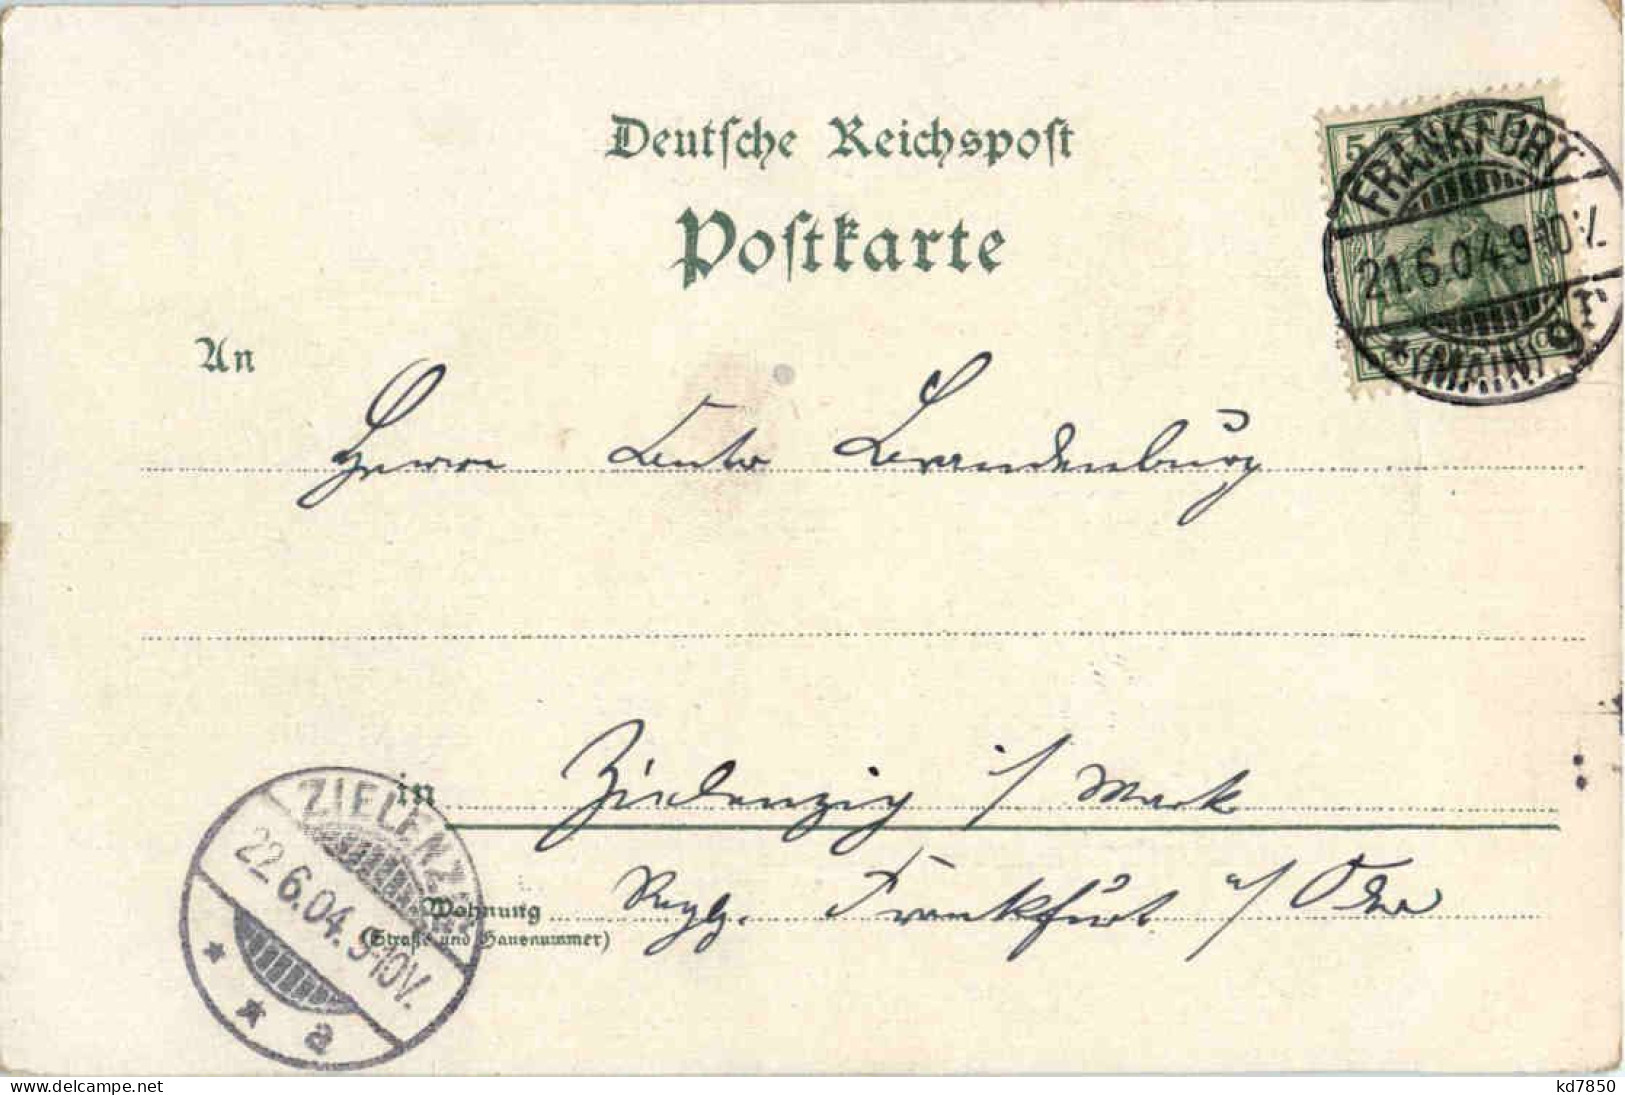 Deutsche Reichspost
Postkarte
5
FRANKFURT
21.6.04.9-10V.
*(MAIN) 9r
An
Herrn Brandenburg
in Zielenzig i/ Mark
Wohnung Rgbz. Frankfurt a/ Oder
(Straße und Hausnummer)
ZIELENZIG
22.6.04.9-10V.
* * a
kd7850